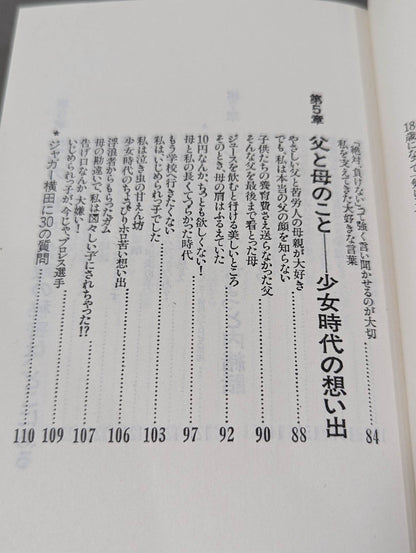 18歳になって
「絶対、負けない」って強く言い聞かせるのが大切
私を支えてきた大好きな言葉……84
第5章 父と母のこと――少女時代の想い出
やさしい父と苦労人の母親が大好き
でも、私は本当の父の顔を知らない……88
子供たちの養育費さえ送らなかった父
そんな父を最後まで看とった母……90
ジュースを飲むと行ける美しいところ
そのとき、母の肩はふるえていた……92
10円なんか、ちっとも欲しくない!
母と私の長くてつらかった時代……97
もう学校へ行きたくない
私は、いじめられっ子でした……103
私は泣き虫の甘えん坊
少女時代のちょっぴりホロ苦い想い出……106
浮浪者からもらったガム
母の勘違いで、私は図々しい子にされちゃった!?……107
告げ口なんか大嫌い!
いじめられっ子が、今じゃプロレス選手……109
*ジャガー横田に30の質問……110